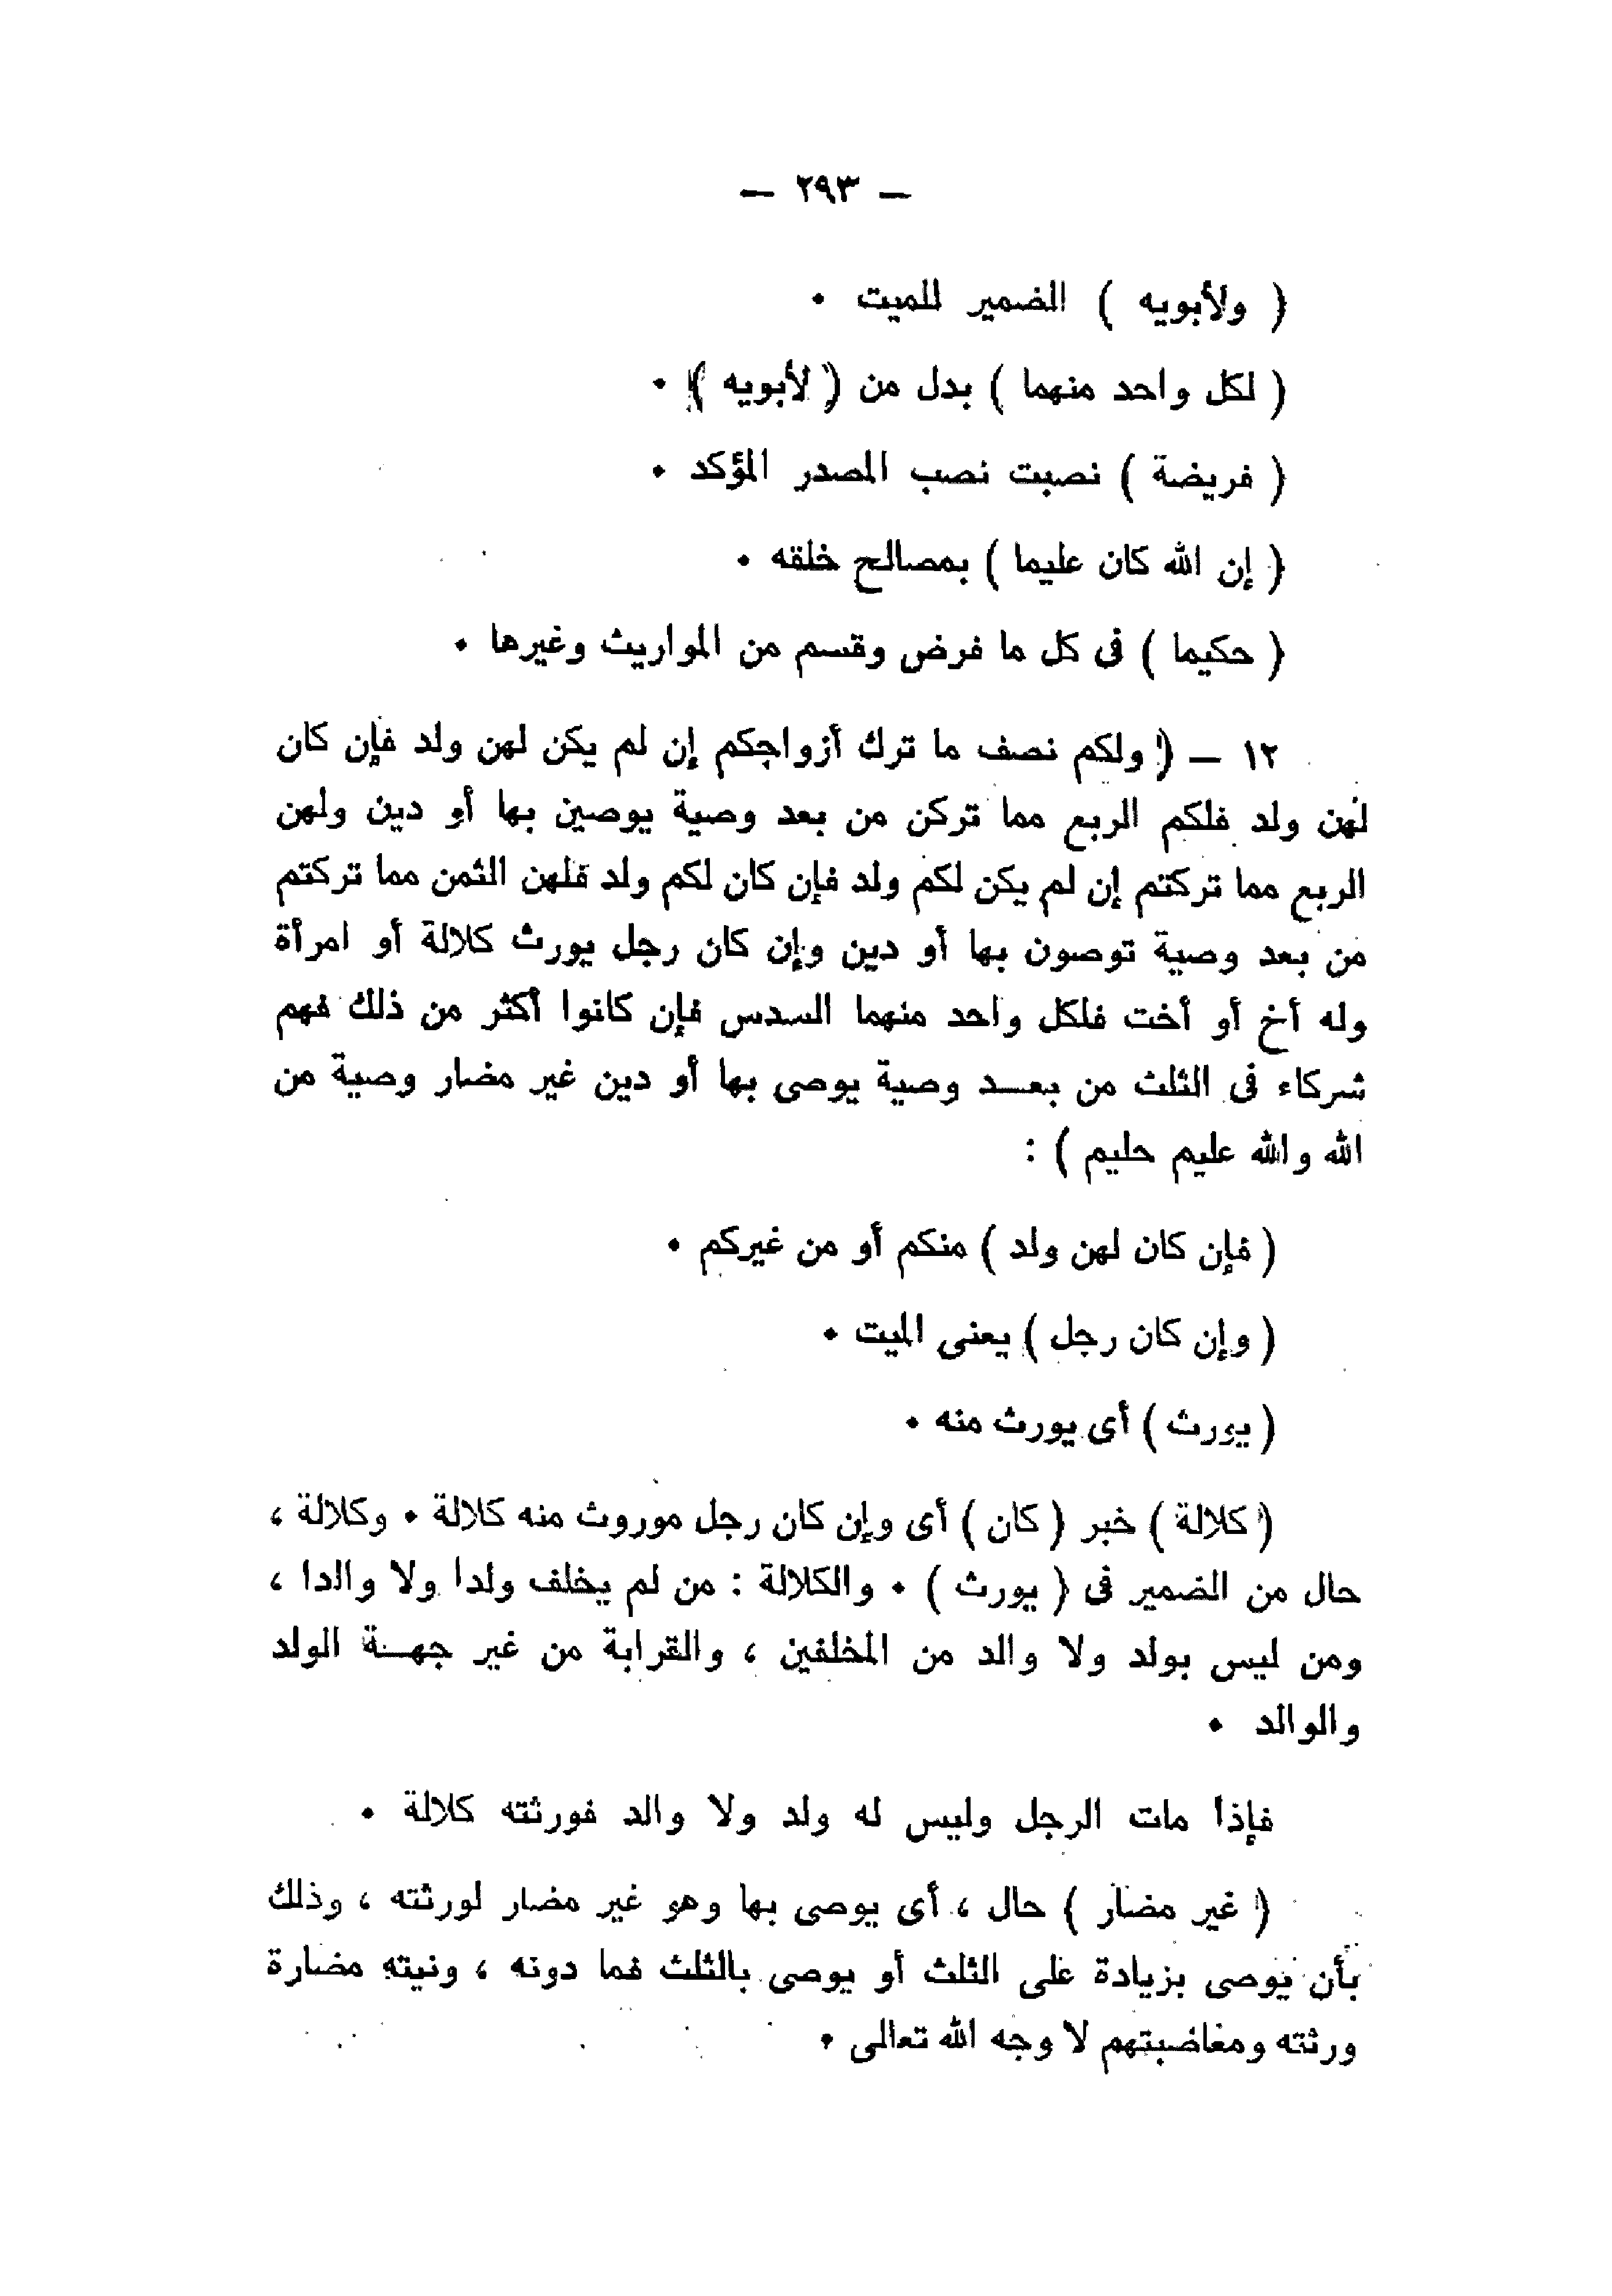 — ٢٩٣ —
( ولأبويه ) الضمير للميت .
( لكل واحد منهما ) بدل من ( لأبويه ) .
( فريضة ) نصبت نصب المصدر المؤكد .
( إن الله كان عليما ) بمصالح خلقه .
( حكيما ) فى كل ما فرض وقسم من المواريث وغيرها .
١٢ — ( ولكم نصف ما ترك أزواجكم إن لم يكن لهن ولد فإن كان
لهن ولد فلكم الربع مما تركن من بعد وصية يوصين بها أو دين ولهن
الربع مما تركتم إن لم يكن لكم ولد فإن كان لكم ولد فلهن الثمن مما تركتم
من بعد وصية توصون بها أو دين وإن كان رجل يورث كلالة أو امرأة
وله أخ أو أخت فلكل واحد منهما السدس فإن كانوا أكثر من ذلك فهم
شركاء فى الثلث من بعد وصية يوصى بها أو دين غير مضار وصية من
الله والله عليم حليم ) :
( فإن كان لهن ولد ) منكم أو من غيركم .
( وإن كان رجل ) يعنى الميت .
( يورث ) أى يورث منه .
( كلالة ) خبر ( كان ) أى وإن كان رجل موروث منه كلالة . وكلالة ،
حال من الضمير فى ( يورث ) . والكلالة : من لم يخلف ولدا ولا والدا ،
ومن ليس بولد ولا والد من المخلفين ، والقرابة من غير جهة الولد
والوالد .
فإذا مات الرجل وليس له ولد ولا والد فورثته كلالة .
( غير مضار ) حال ، أى يوصى بها وهو غير مضار لورثته ، وذلك
بأن يوصى بزيادة على الثلث أو يوصى بالثلث فما دونه ، ونيته مضارة
ورثته ومغاضبتهم لا وجه الله تعالى .